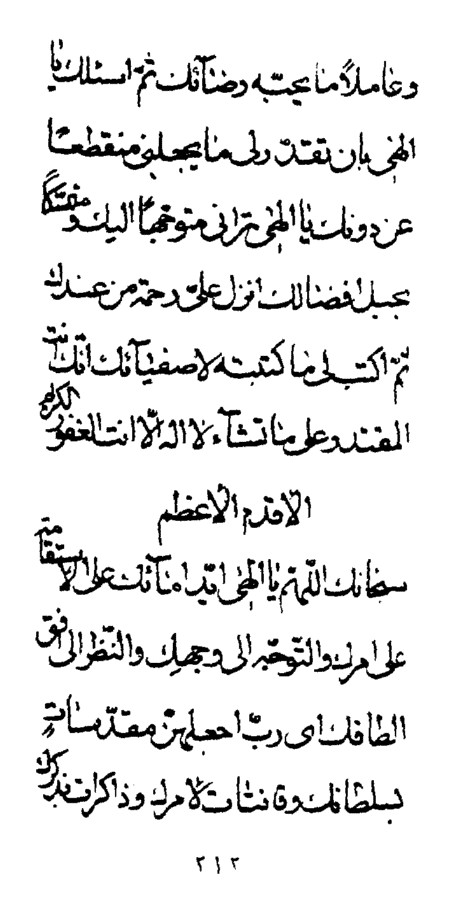 وعاملاً ما يحبّه رضآئك ثمّ اسئلك يا
الهي بان تقدّر لي ما يجعلني منقطعاً
عن دونك يا الهي تراني متوجّهاً اليك و متمسّكاً
بحبل افضالك انزل عليّ رحمة من عندك
ثمّ اكتب لي ما كتبته لاصفيآئك انّك انت
المقتدر على ما تشآء لا اله الّا انت الغفور الكريم
الاقدم الاعظم
سبحانك اللّهمّ يا الهي ايّد امآئك على الاستقامة
على امرك والتّوجّه الى وجهك والنّظر الى افق
الطافك اي ربّ اجعلهنّ مقدّسات
بسلطانك وقانتات لامرك وذاكرات بذكرك
٢١٢